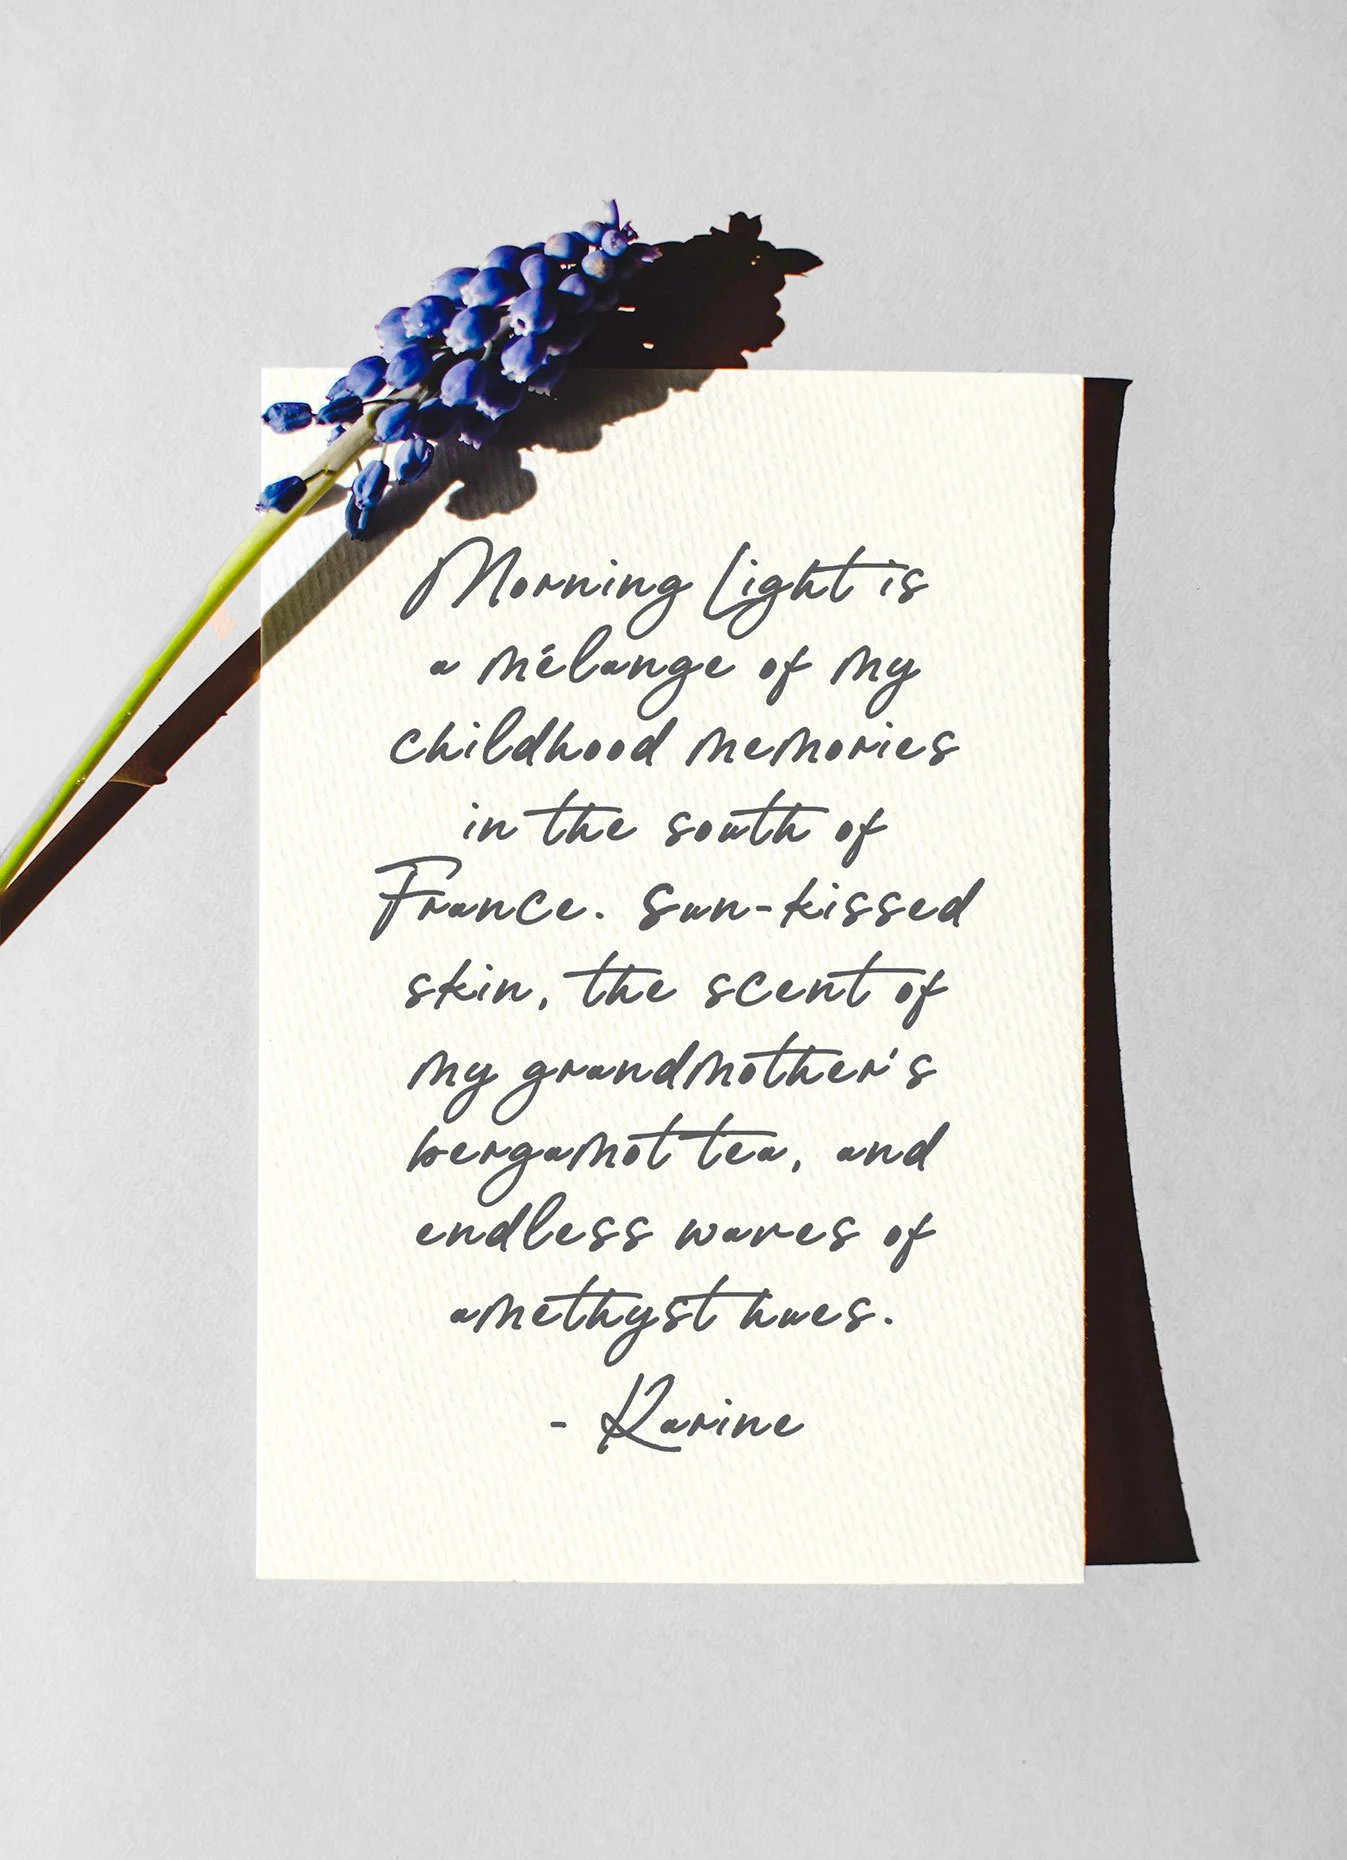 Morning Light is
a mélange of my
childhood memories
in the south of
France. Sun-kissed
skin, the scent of
my grandmother's
bergamot tea, and
endless waves of
amethyst hues.
- Karine